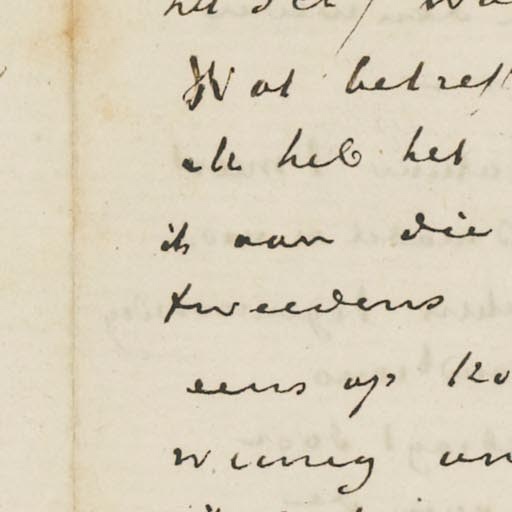 Wat betref
ik heb het
ik aan die
tweedens
eens op ko
weinig